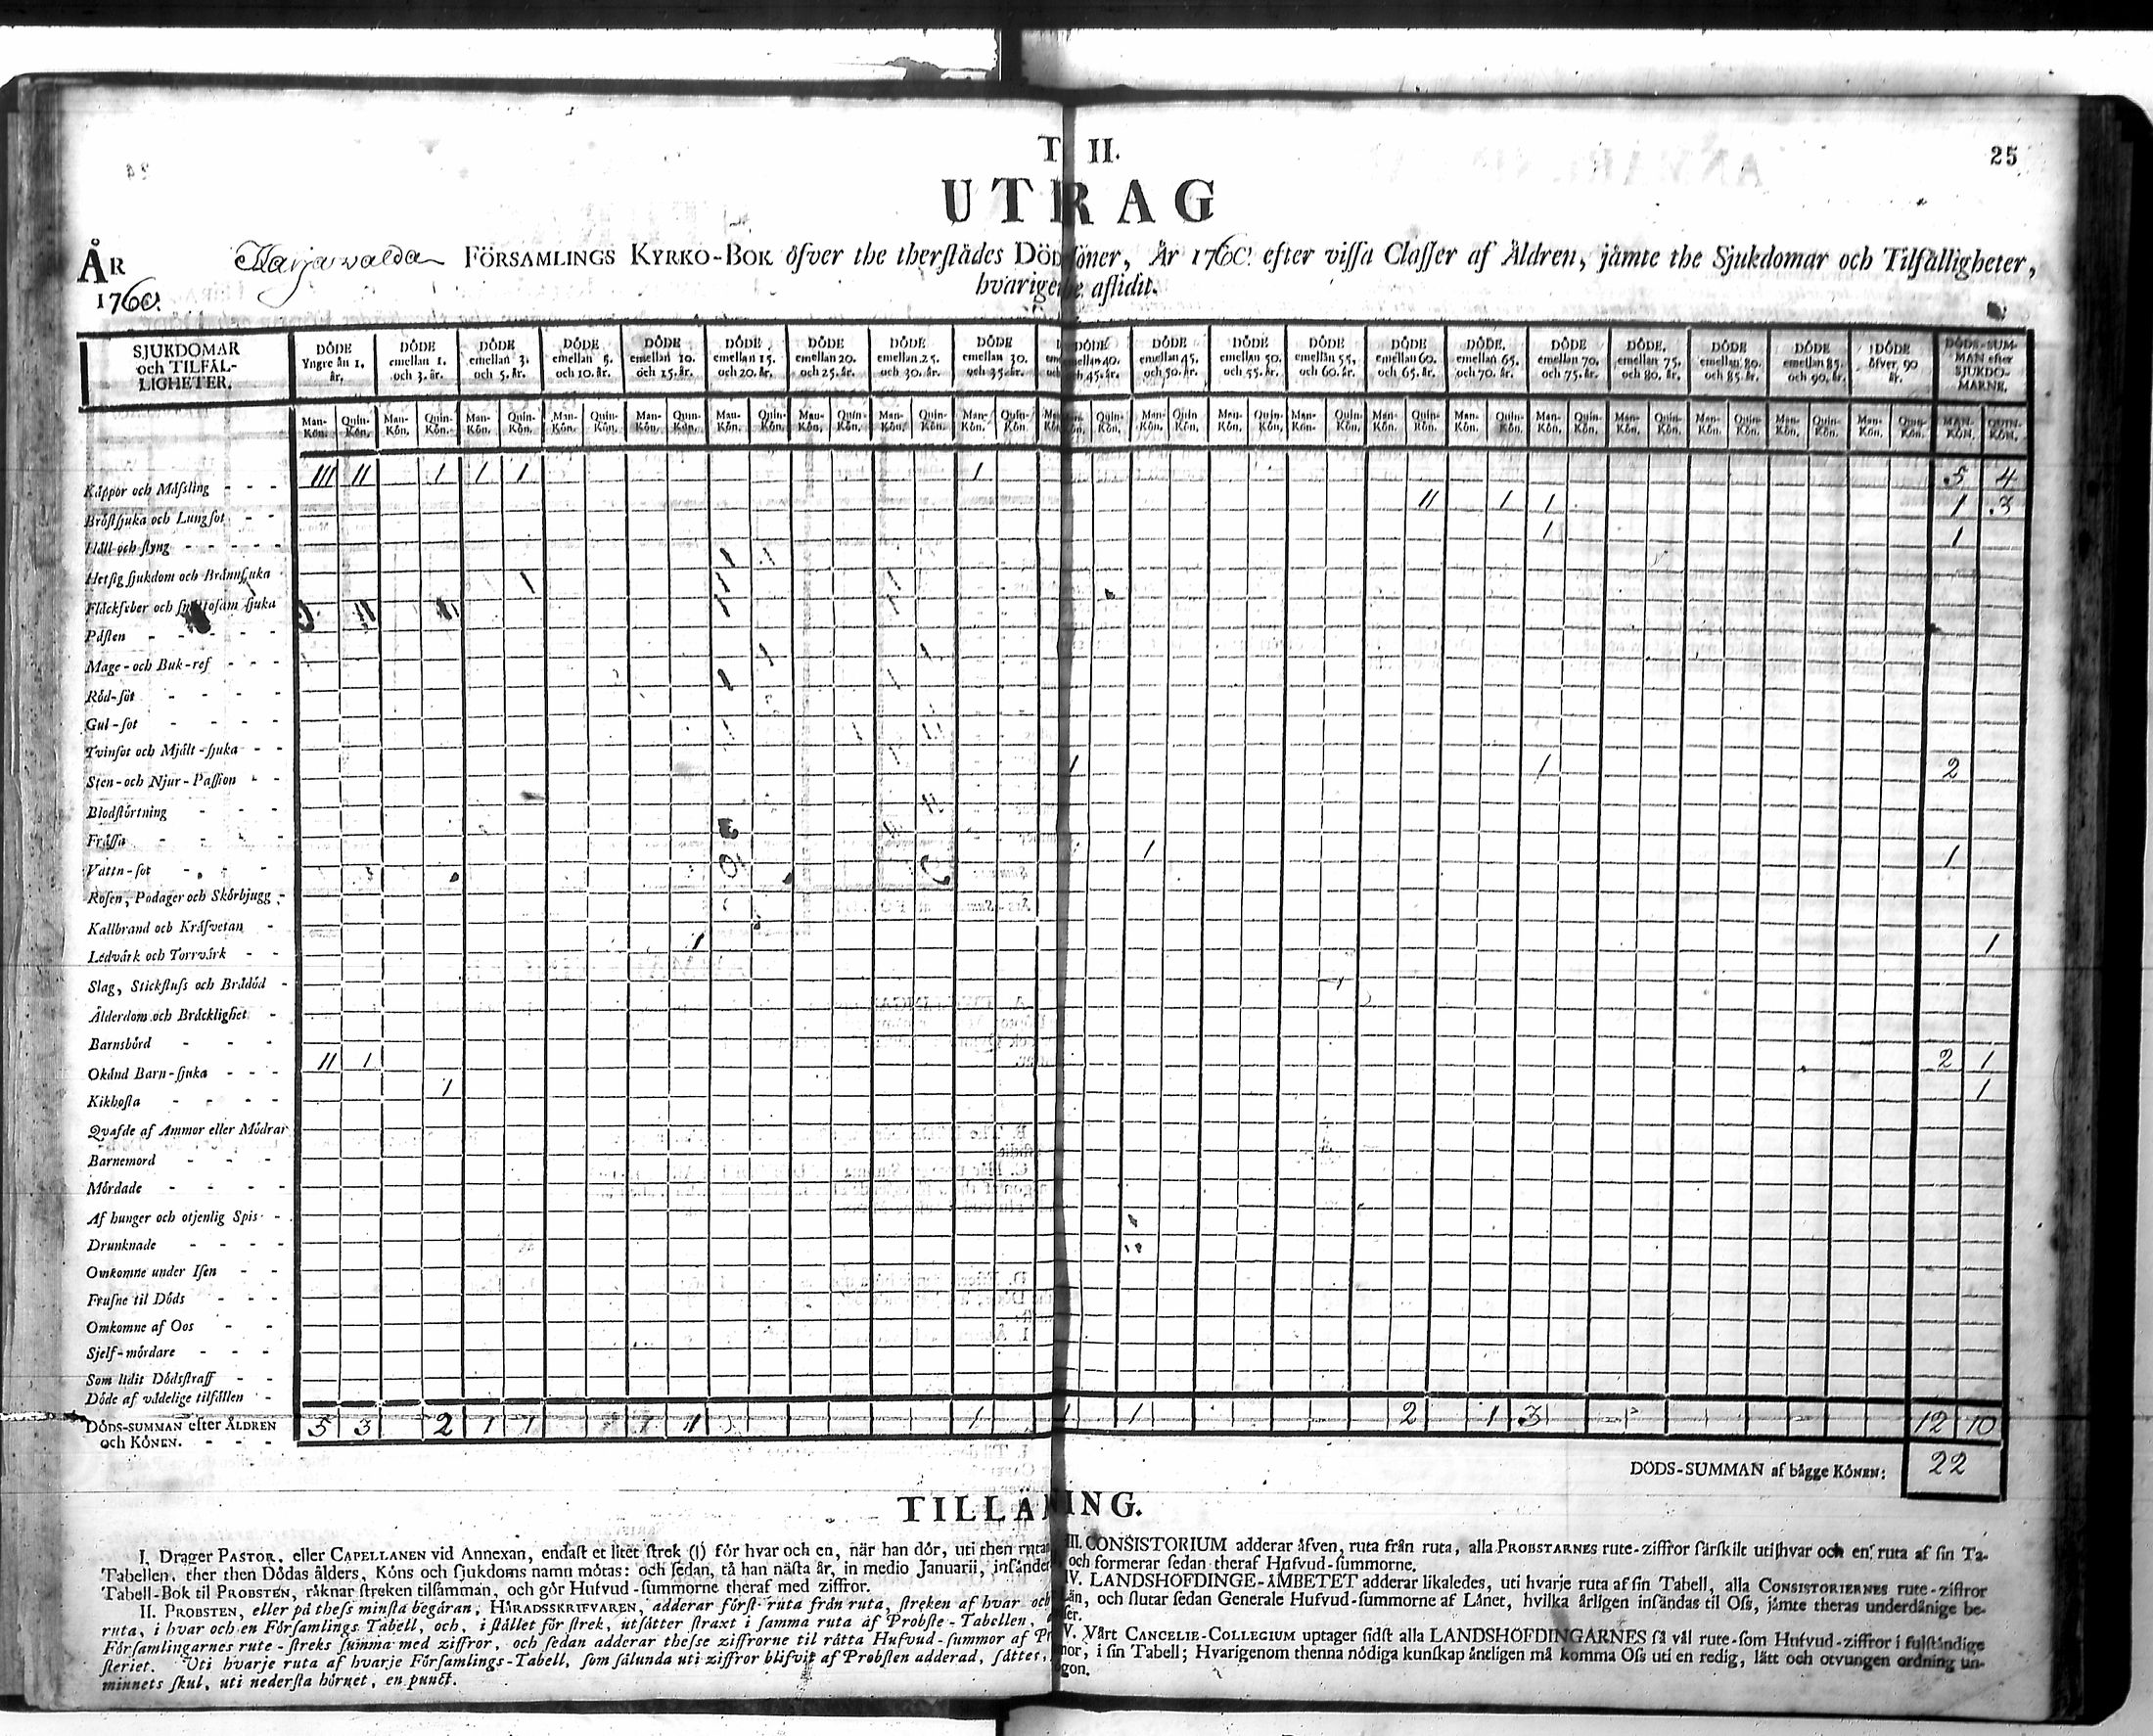 T II.
25
UTRAG
ÅR Karjawalda FÖRSAMLINGS KYRKO-BOK öfver the therstädes Död söner, År 1760. efter vissa Classer af Äldren, jämte the Sjukdomar och Tilfälligheter,
1760. hvarige aflidit.
SJUKDOMAR och TILFÄLLIGHETER.
DÖDE Yngre än 1. år.
DÖDE emellan 1. och 3. år.
DÖDE emellan 3. och 5. år.
DÖDE emellan 5. och 10. år.
DÖDE emellan 10. och 15. år.
DÖDE emellan 15. och 20. år.
DÖDE emellan 20. och 25. år.
DÖDE emellan 25. och 30. år.
DÖDE emellan 30. och 35. år.
DÖDE 40. och 45. år.
DÖDE emellan 45. och 50. år.
DÖDE emellan 50. och 55. år.
DÖDE emellan 55. och 60. år.
DÖDE emellan 60. och 65. år.
DÖDE emellan 65. och 70. år.
DÖDE emellan 70. och 75. år.
DÖDE emellan 75. och 80. år.
DÖDE emellan 80. och 85. år.
DÖDE emellan 85. och 90. år.
DÖDE öfver 90 år.
DÖDS-SUMMAN efter SJUKDOMARNE.
Man-Kön. Quin-Kön.
Kåppor och Mässling - - - III II I I I I 5 4
Bröstsjuka och Lungsot - - II I I 1 3
Håll och styng - - - - - I 1
Hetsig sjukdom och Brännsjuka
Fläckfeber och smittosam sjuka
Påsten - - - - -
Mage- och Buk-ref - - -
Röd-sot - - - -
Gul-sot - - - -
Tvinsot och Mjält-sjuka - -
Sten- och Njur-Passion - - I I 2
Blodstörtning - - -
Frässa - - - -
Vattn-sot - - - I 1
Rosen, Podager och Skörbjugg -
Kallbrand och Kräfvetan -
Ledvärk och Torrvärk - - I 1
Slag, Stickfluss och Brådöd -
Ålderdom och Bräcklighet -
Barnsbörd - - -
Okänd Barn-sjuka - - - II I 2 1
Kikhosta - - - - I 1
Qvafde af Ammor eller Mödrar
Barnemord - - -
Mördade - - - -
Af hunger och otjenlig Spis -
Drunknade - - - -
Omkomne under Isen - -
Frusne til Döds - - -
Omkomne af Oos - -
Sjelf-mördare - - -
Som lidit Dödsstraff - -
Döde af vådelige tilfällen -
DÖDS-SUMMAN efter ÅLDREN och KÖNEN. - - - 5 3 2 1 1 1 1 1 1 1 2 1 3 12 10
DÖDS-SUMMAN af bägge KÖNEN: 22
TILLÄ NING.
I. Drager PASTOR, eller CAPELLANEN vid Annexan, endast et litet strek (I) för hvar och en, när han dör, uti then ruta
Tabellen, ther then Dödas ålders, Köns och sjukdoms namn mötas: och sedan, tå han nästa år, in medio Januarii, insände
Tabell-Bok til PROBSTEN, räknar streken tilsamman, och gör Hufvud-summorne theraf med ziffror.
II. PROBSTEN, eller på thess minsta begäran, HÄRADSSKRIFVAREN, adderar först ruta från ruta, streken af hvar och
ruta, i hvar och en Församlings Tabell, och, i stället för strek, utsätter straxt i samma ruta af Probste-Tabellen,
Församlingarnes rute-streks summa med ziffror, och sedan adderar thesse ziffrorne til rätta Hufvud-summor af Pr
steriet. Uti hvarje ruta af hvarje Församlings-Tabell, som sålunda uti ziffror blifvit af Probsten adderad, sättes,
minnets skul, uti nedersta hörnet, en punct.
III. CONSISTORIUM adderar äfven, ruta från ruta, alla PROBSTARNES rute-ziffror särskilt uti hvar och en ruta af sin Ta-
och formerar sedan theraf Hufvud-summorne.
IV. LANDSHÖFDINGE-ÄMBETET adderar likaledes, uti hvarje ruta af sin Tabell, alla CONSISTORIERNES rute-ziffror
Län, och slutar sedan Generale Hufvud-summorne af Länet, hvilka årligen insändas til Oss, jämte theras underdånige be-
ser.
V. Vårt CANCELIE-COLLEGIUM uptager sidst alla LANDSHÖFDINGARNES så väl rute-som Hufvud-ziffror i fulständige
mor, i sin Tabell; Hvarigenom thenna nödiga kunskap äntligen må komma Oss uti en redig, lätt och otvungen ordning un-
ögon.